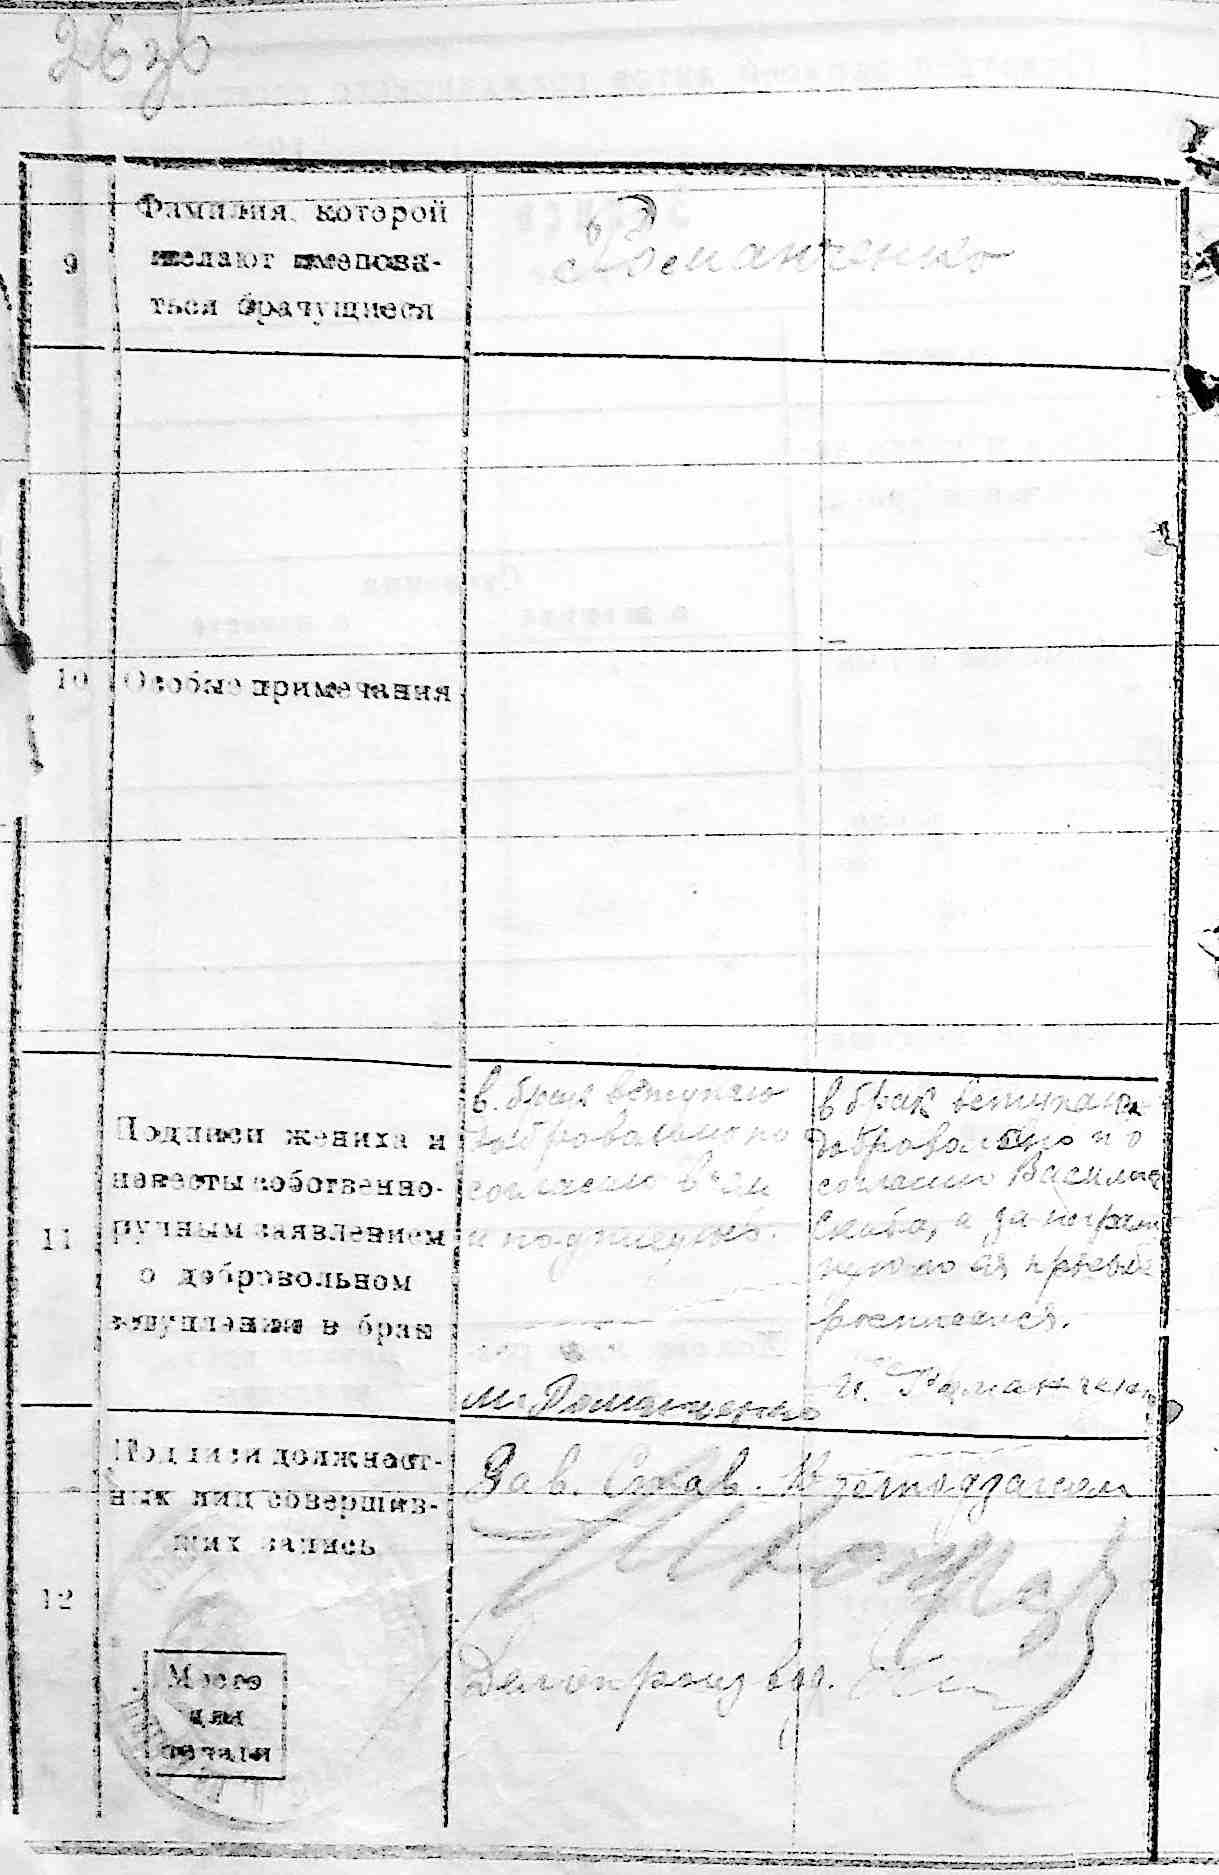 26 зв
9
Фамилия, которой
желают именова-
ться брачущиеся
Романченко
10
Особые примечания
11
Подписи жениха и
невесты собственно-
ручным заявлением
о добровольном
вступлении в брак
в. брак вступаю
добровольно по
согласию в чем
и подписуюсь.
М. Романченко
в брак вступаю
добровольно по
согласию
а за неграм
росписался.
И. Романченко
12
Подписи должност-
ных лиц совершив-
ших запись
Место
для
печати
Зав.
Делопроизвод.